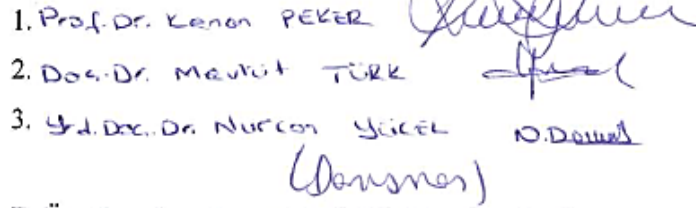 1. Prof. Dr. Kenan PEKER
2. Doç. Dr. Mevlüt TÜRK
3. Yrd. Doç. Dr. Nurcan YÜCEL
(Danışman)